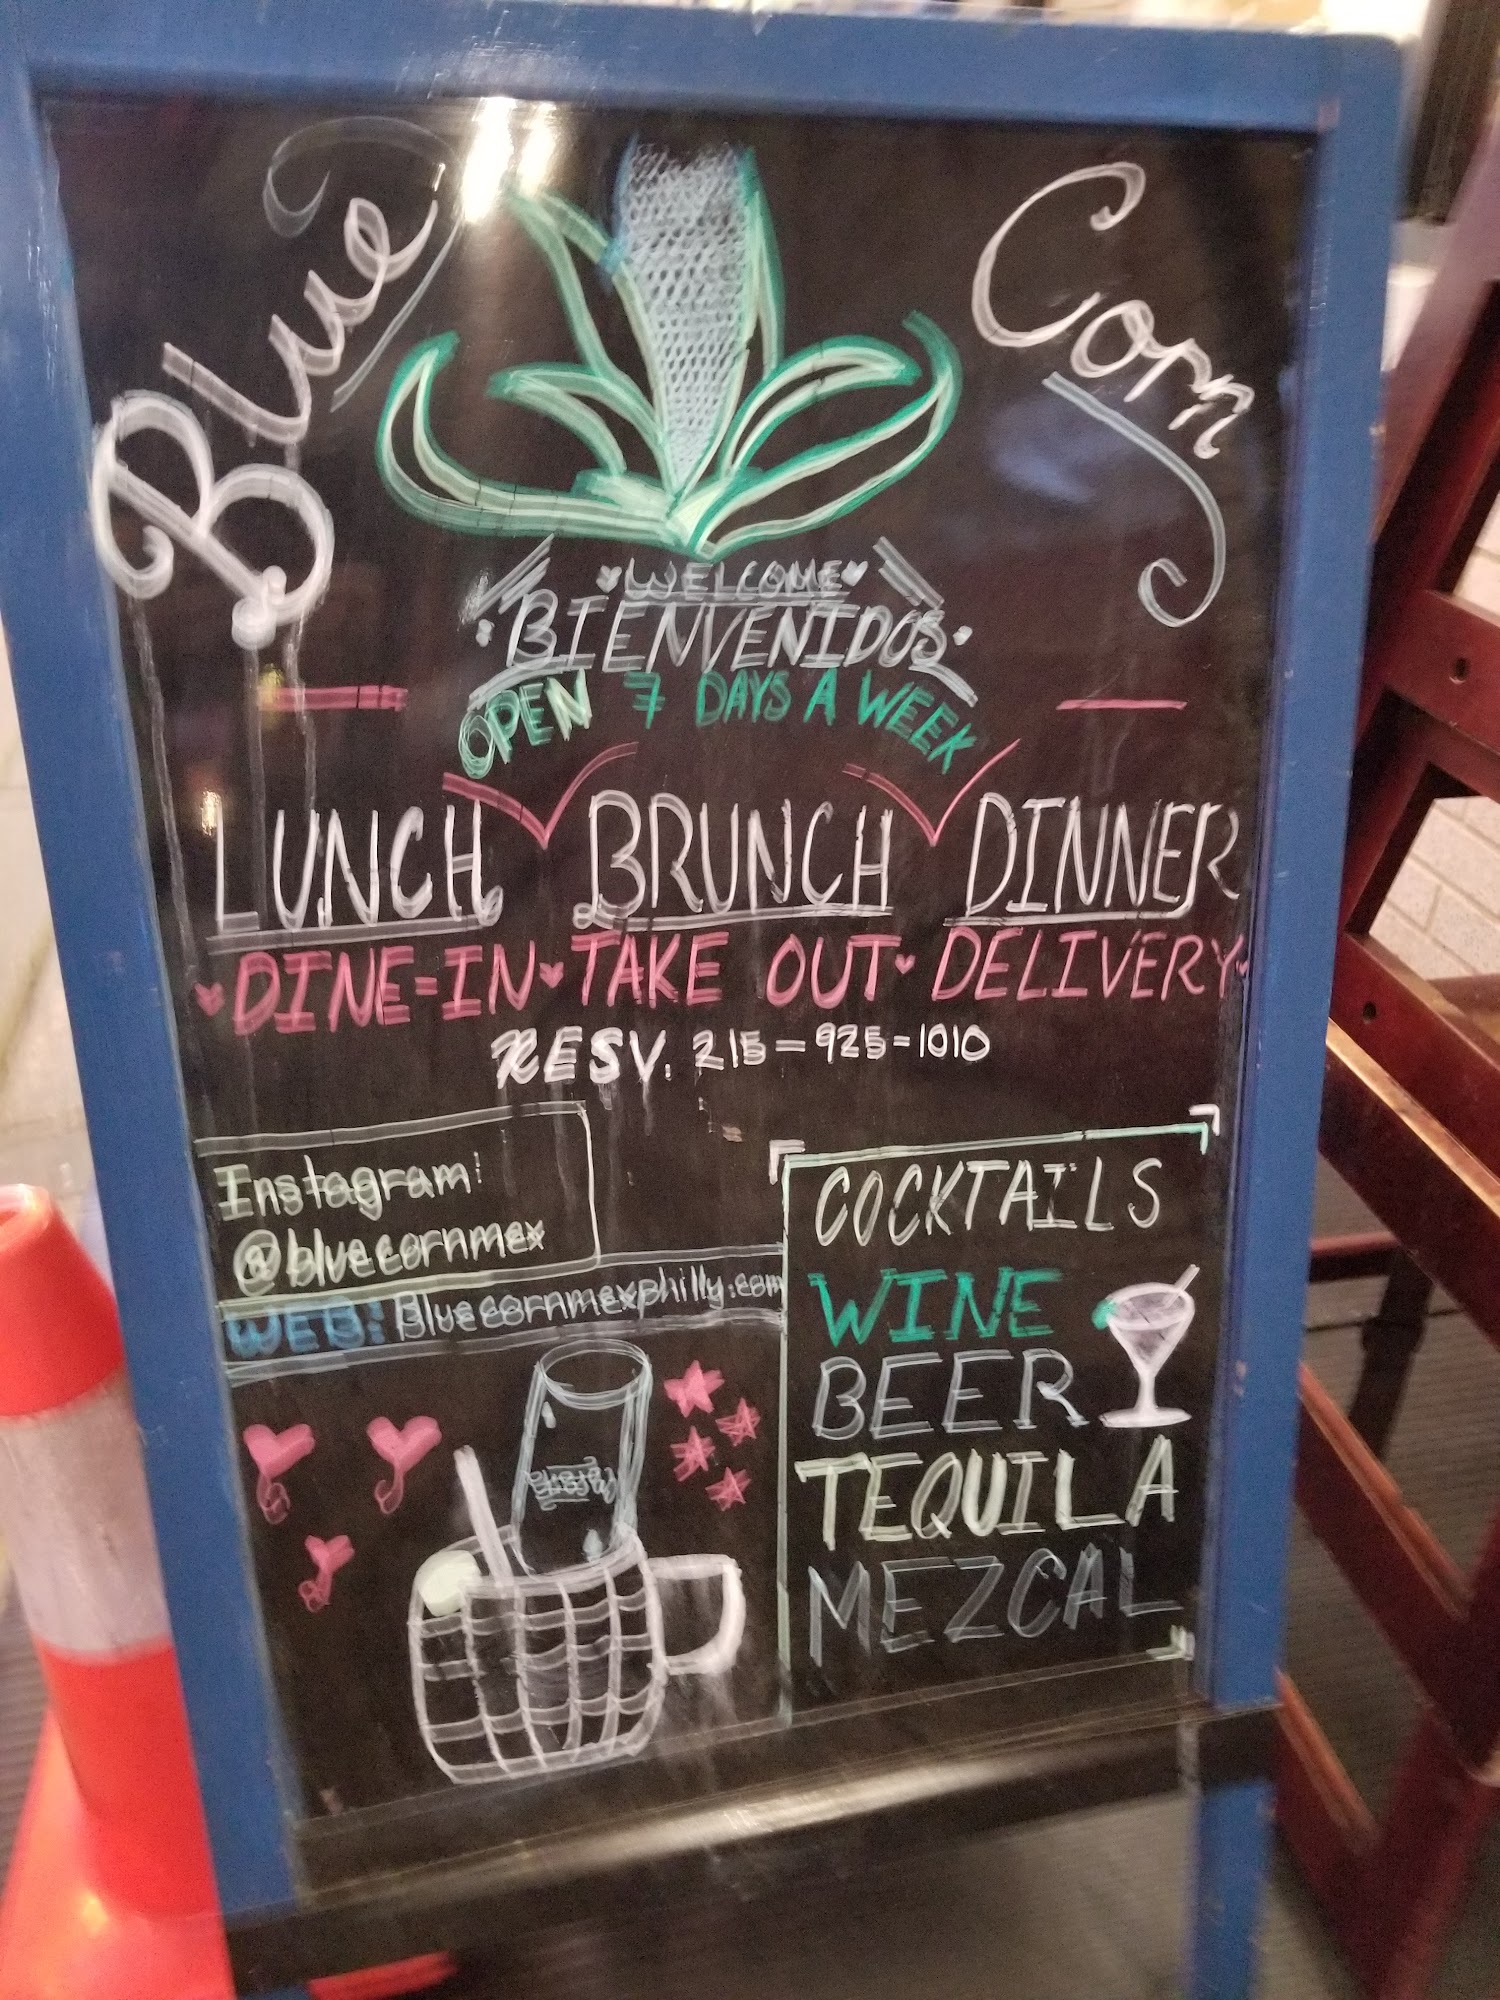 Blue Corn
WELCOME
BIENVENIDOS
OPEN 7 DAYS A WEEK
LUNCH BRUNCH DINNER
DINE-IN TAKE OUT DELIVERY
RESV. 215-925-1010
Instagram:
@bluecornmex
WEB: Bluecornmexphilly.com
COCKTAILS
WINE
BEER
TEQUILA
MEZCAL